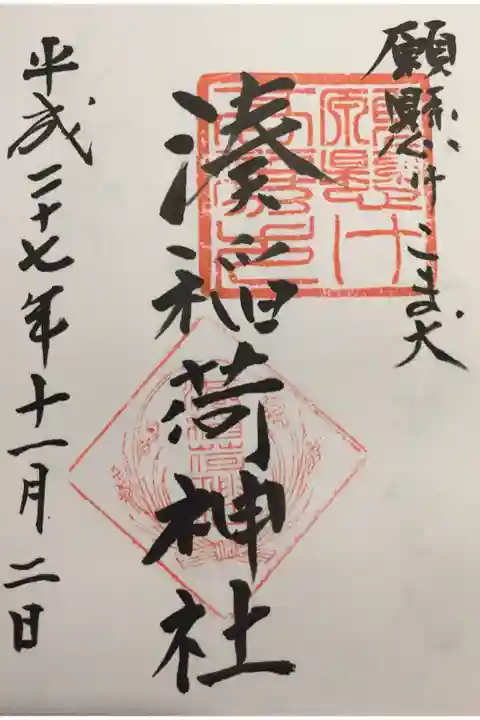 願懸け こま犬
湊稲荷神社
平成二十七年十一月二日